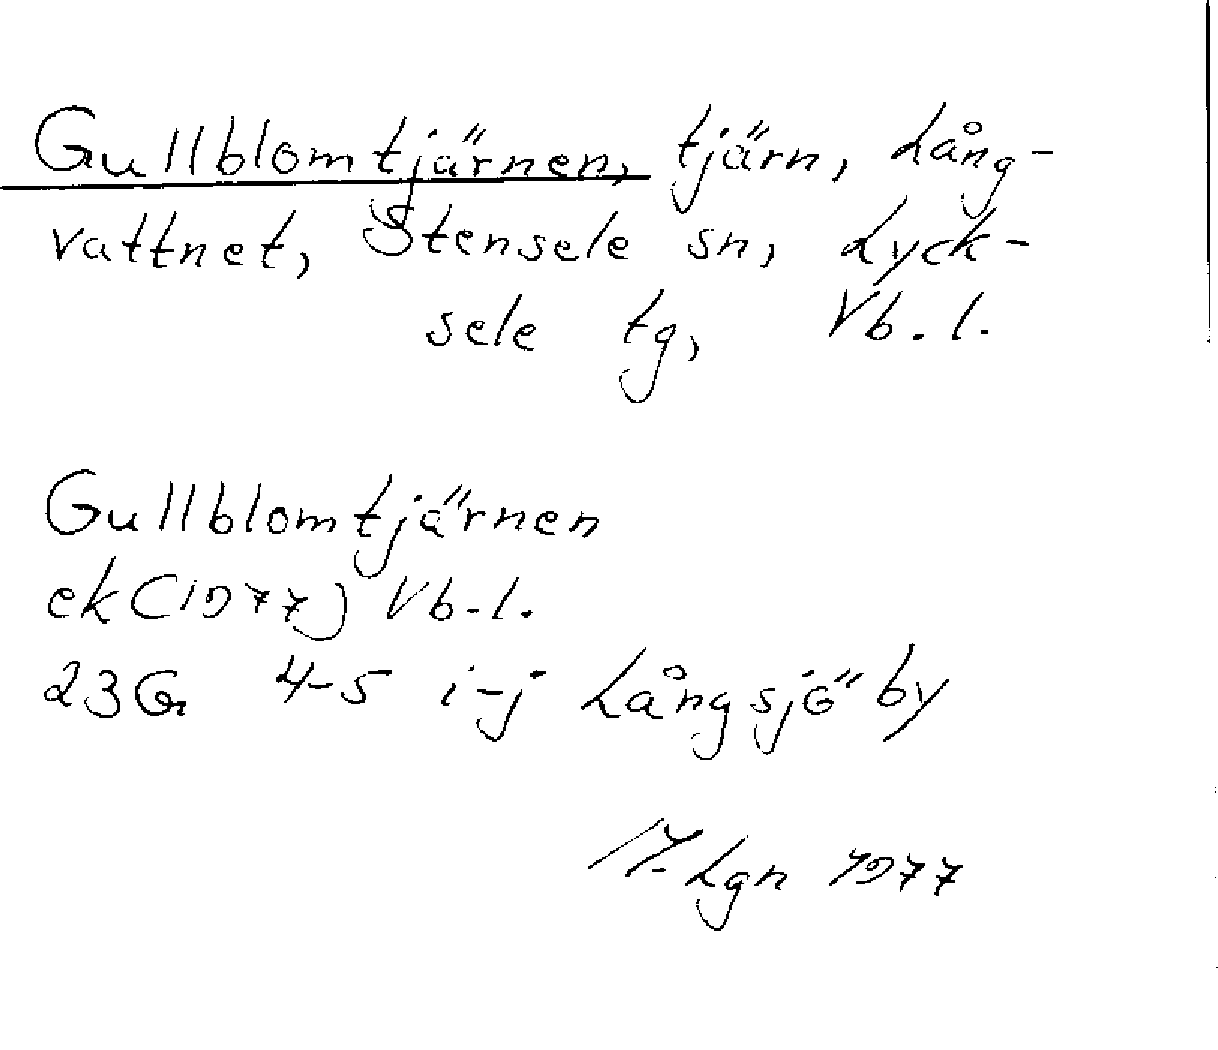 Gullblomtjärnen, tjärn, Lång-
vattnet, Stensele sn, Lyck-
sele tg, Vb. l.
Gullblomtjärnen
ek (1977) Vb. l.
23G 4-5 i-j Långsjöby
Lgn 1977